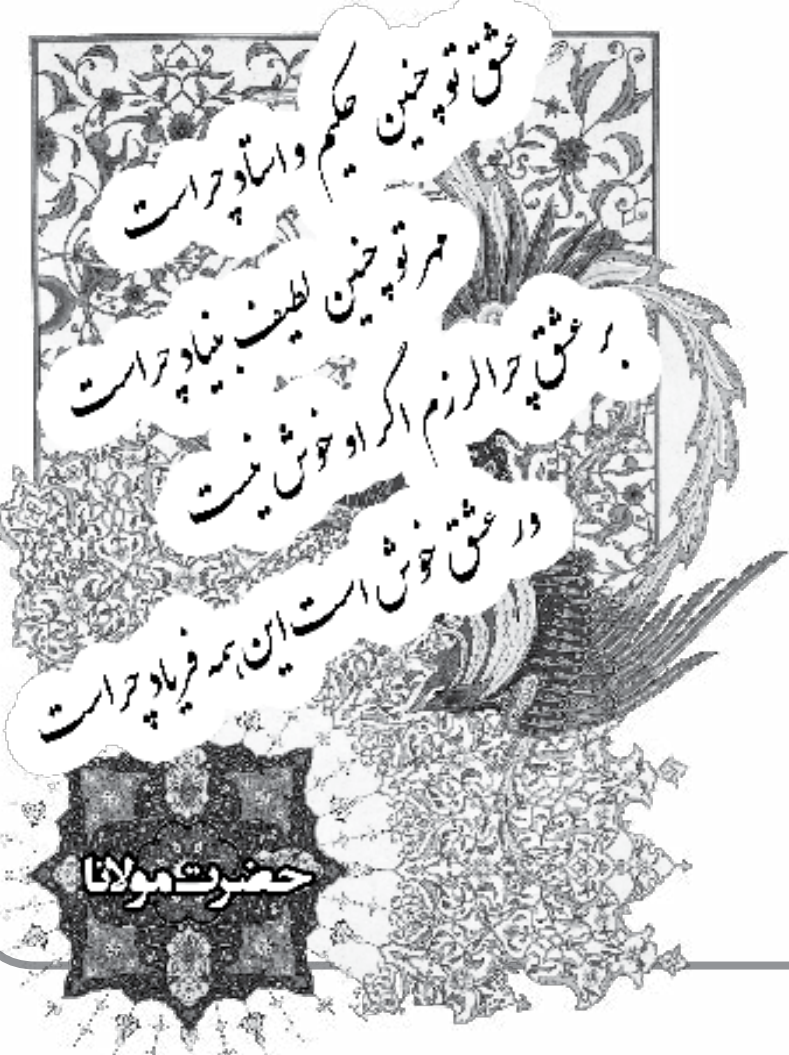 عشق تو چنین حکیم و استاد چراست
مهر تو چنین لطیف بنیاد چراست
بر عشق چرا لرزم اگر او خوش نیست
ور عشق خوش است این همه فریاد چراست
حضرت مولانا